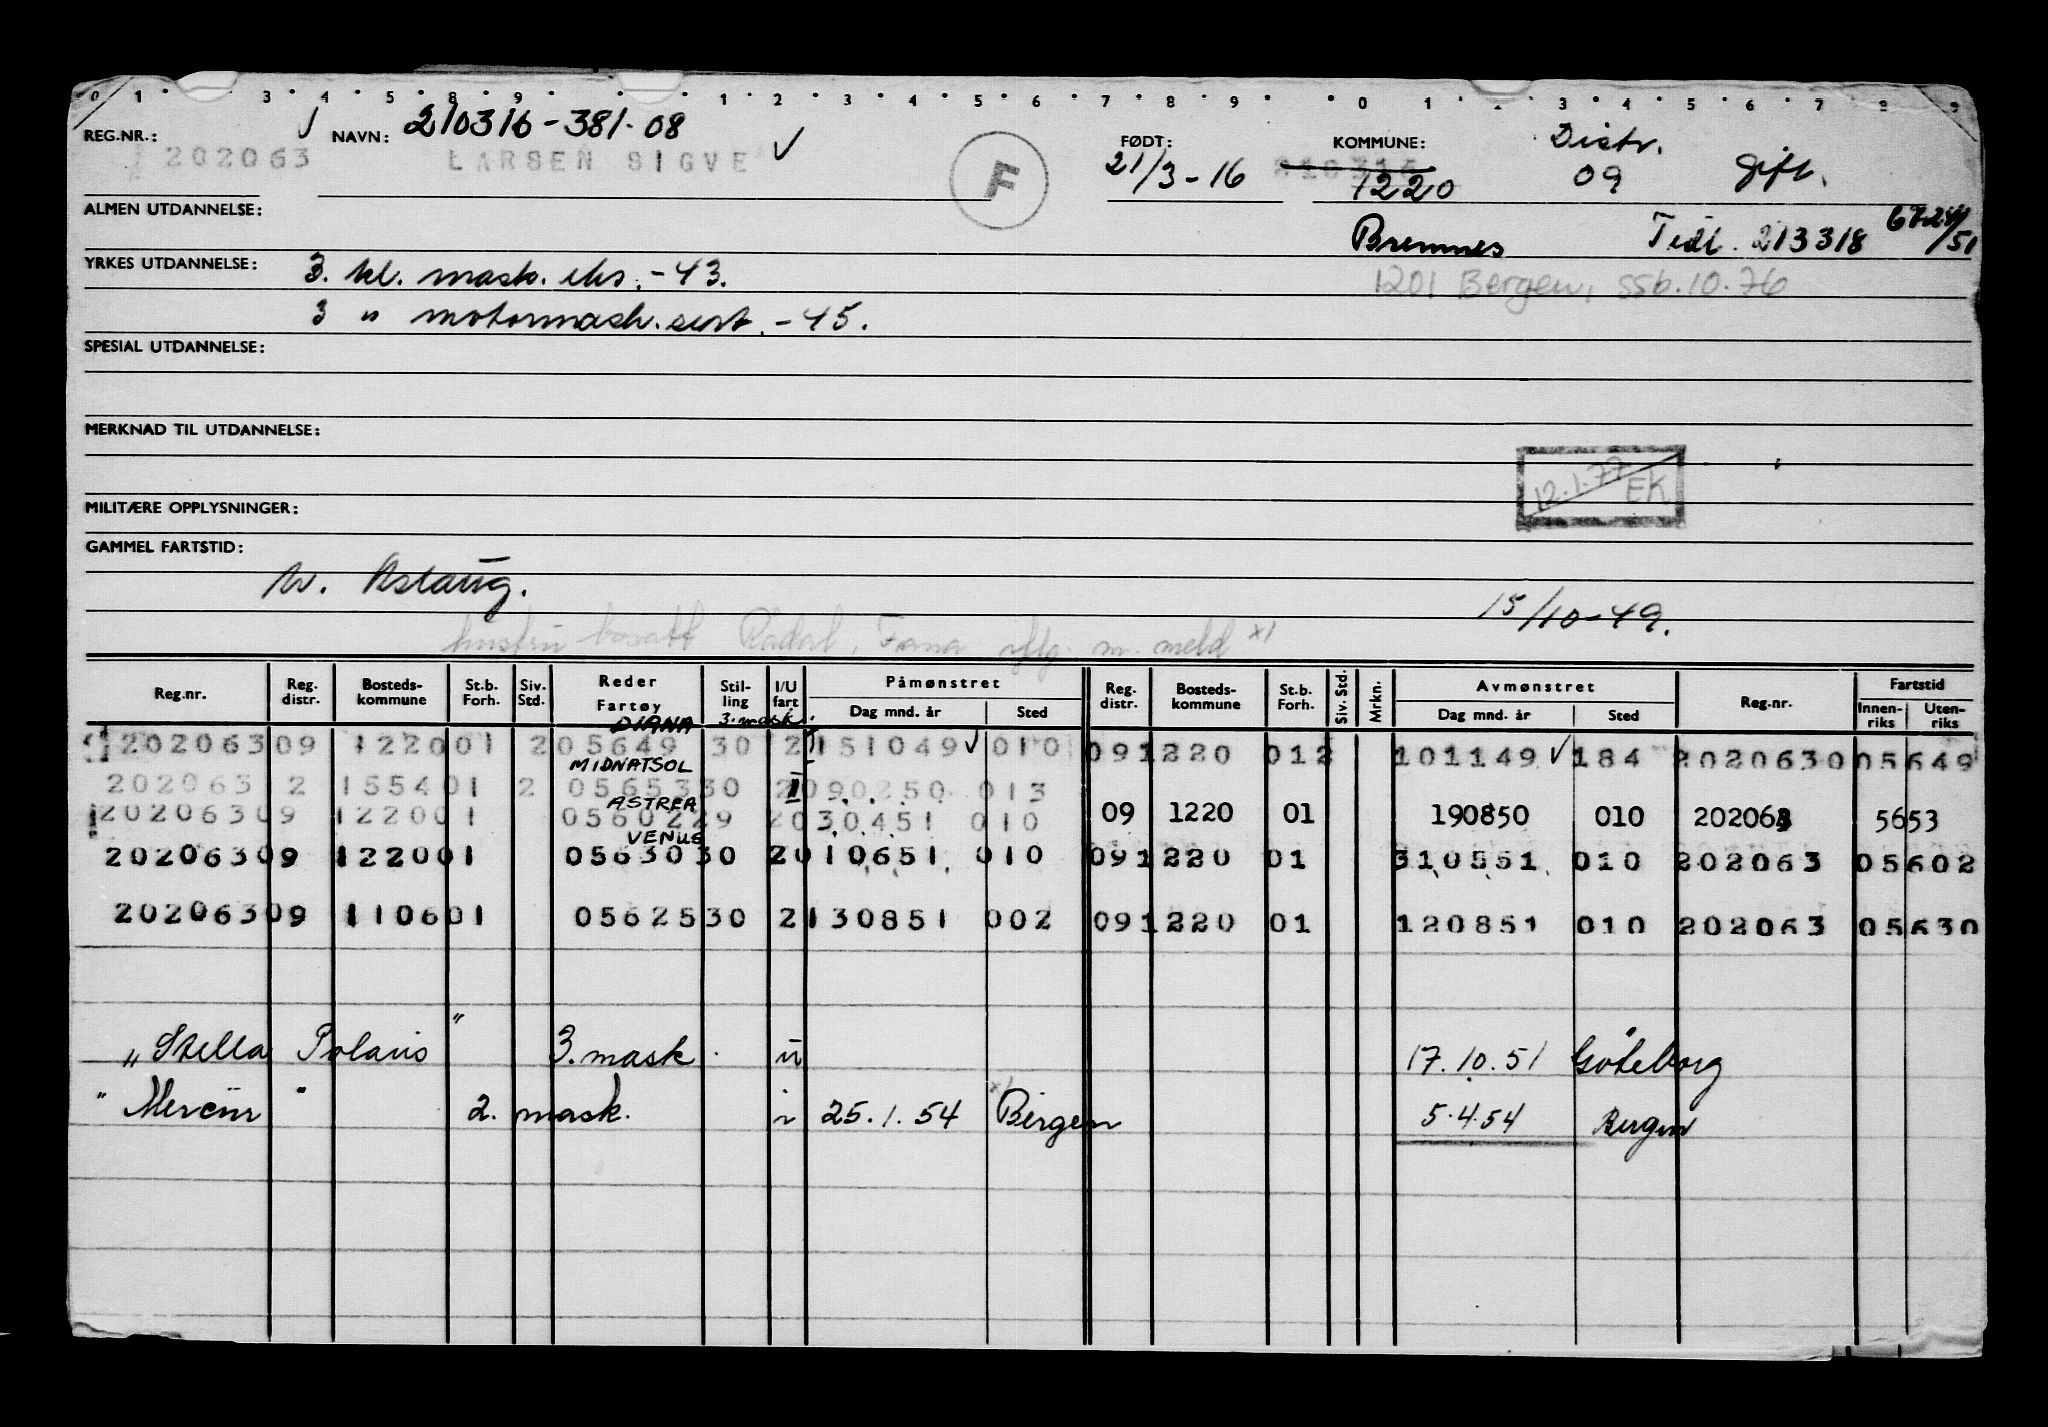 0 1 3 4 5 8 9 1 2 3 4 5 6 7 8 9 0 1 3 4 5 6 7 8 9
REG.NR.: NAVN: 210316-381.08 FØDT: KOMMUNE: Distr.
202063 LARSEN SIGVE F 21/3-16 1220 09 Gift.
ALMEN UTDANNELSE:
Bremnes Tidl. 213318
YRKES UTDANNELSE: 3. kl. mask. eks. -43.
1201 Bergen, ssb.10.76
3 " motormask.sert. -45.
SPESIAL UTDANNELSE:
MERKNAD TIL UTDANNELSE:
12.1.77 EK
MILITÆRE OPPLYSNINGER:
GAMMEL FARTSTID:
Aslaug.
15/10-49.
hustru bosatt Rådal, Fana iflg. m. meld x)
Reg.nr. Reg. distr. Bosteds-kommune St.b. Forh. Siv. Std. Reder Fartøy Stil-ling I/U fart Påmønstret Dag mnd. år Sted Reg. distr. Bosteds-kommune St.b. Forh. Siv. Std. Mrkn. Avmønstret Dag mnd. år Sted Reg.nr. Fartstid Innen-riks Uten-riks
DIANA 3. mask.
202063 09 1220 01 2 05649 30 2 151049 010 09 1220 01 2 101149 184 202063 0 05649
MIDNATSOL
202063 2 1554 01 2 05653 30 2 090250 013
ASTREA
202063 09 1220 01 05602 29 2 030451 010 09 1220 01 190850 010 202063 5653
VENUS
202063 09 1220 01 05630 30 2 010651 010 09 1220 01 310551 010 202063 05602
202063 09 1106 01 05625 30 2 130851 002 09 1220 01 120851 010 202063 05630
"Stella Polaris" 3. mask. u 17.10.51 Göteborg
"Mercur" 2. mask. i 25.1.54 x) Bergen 5.4.54 Bergen